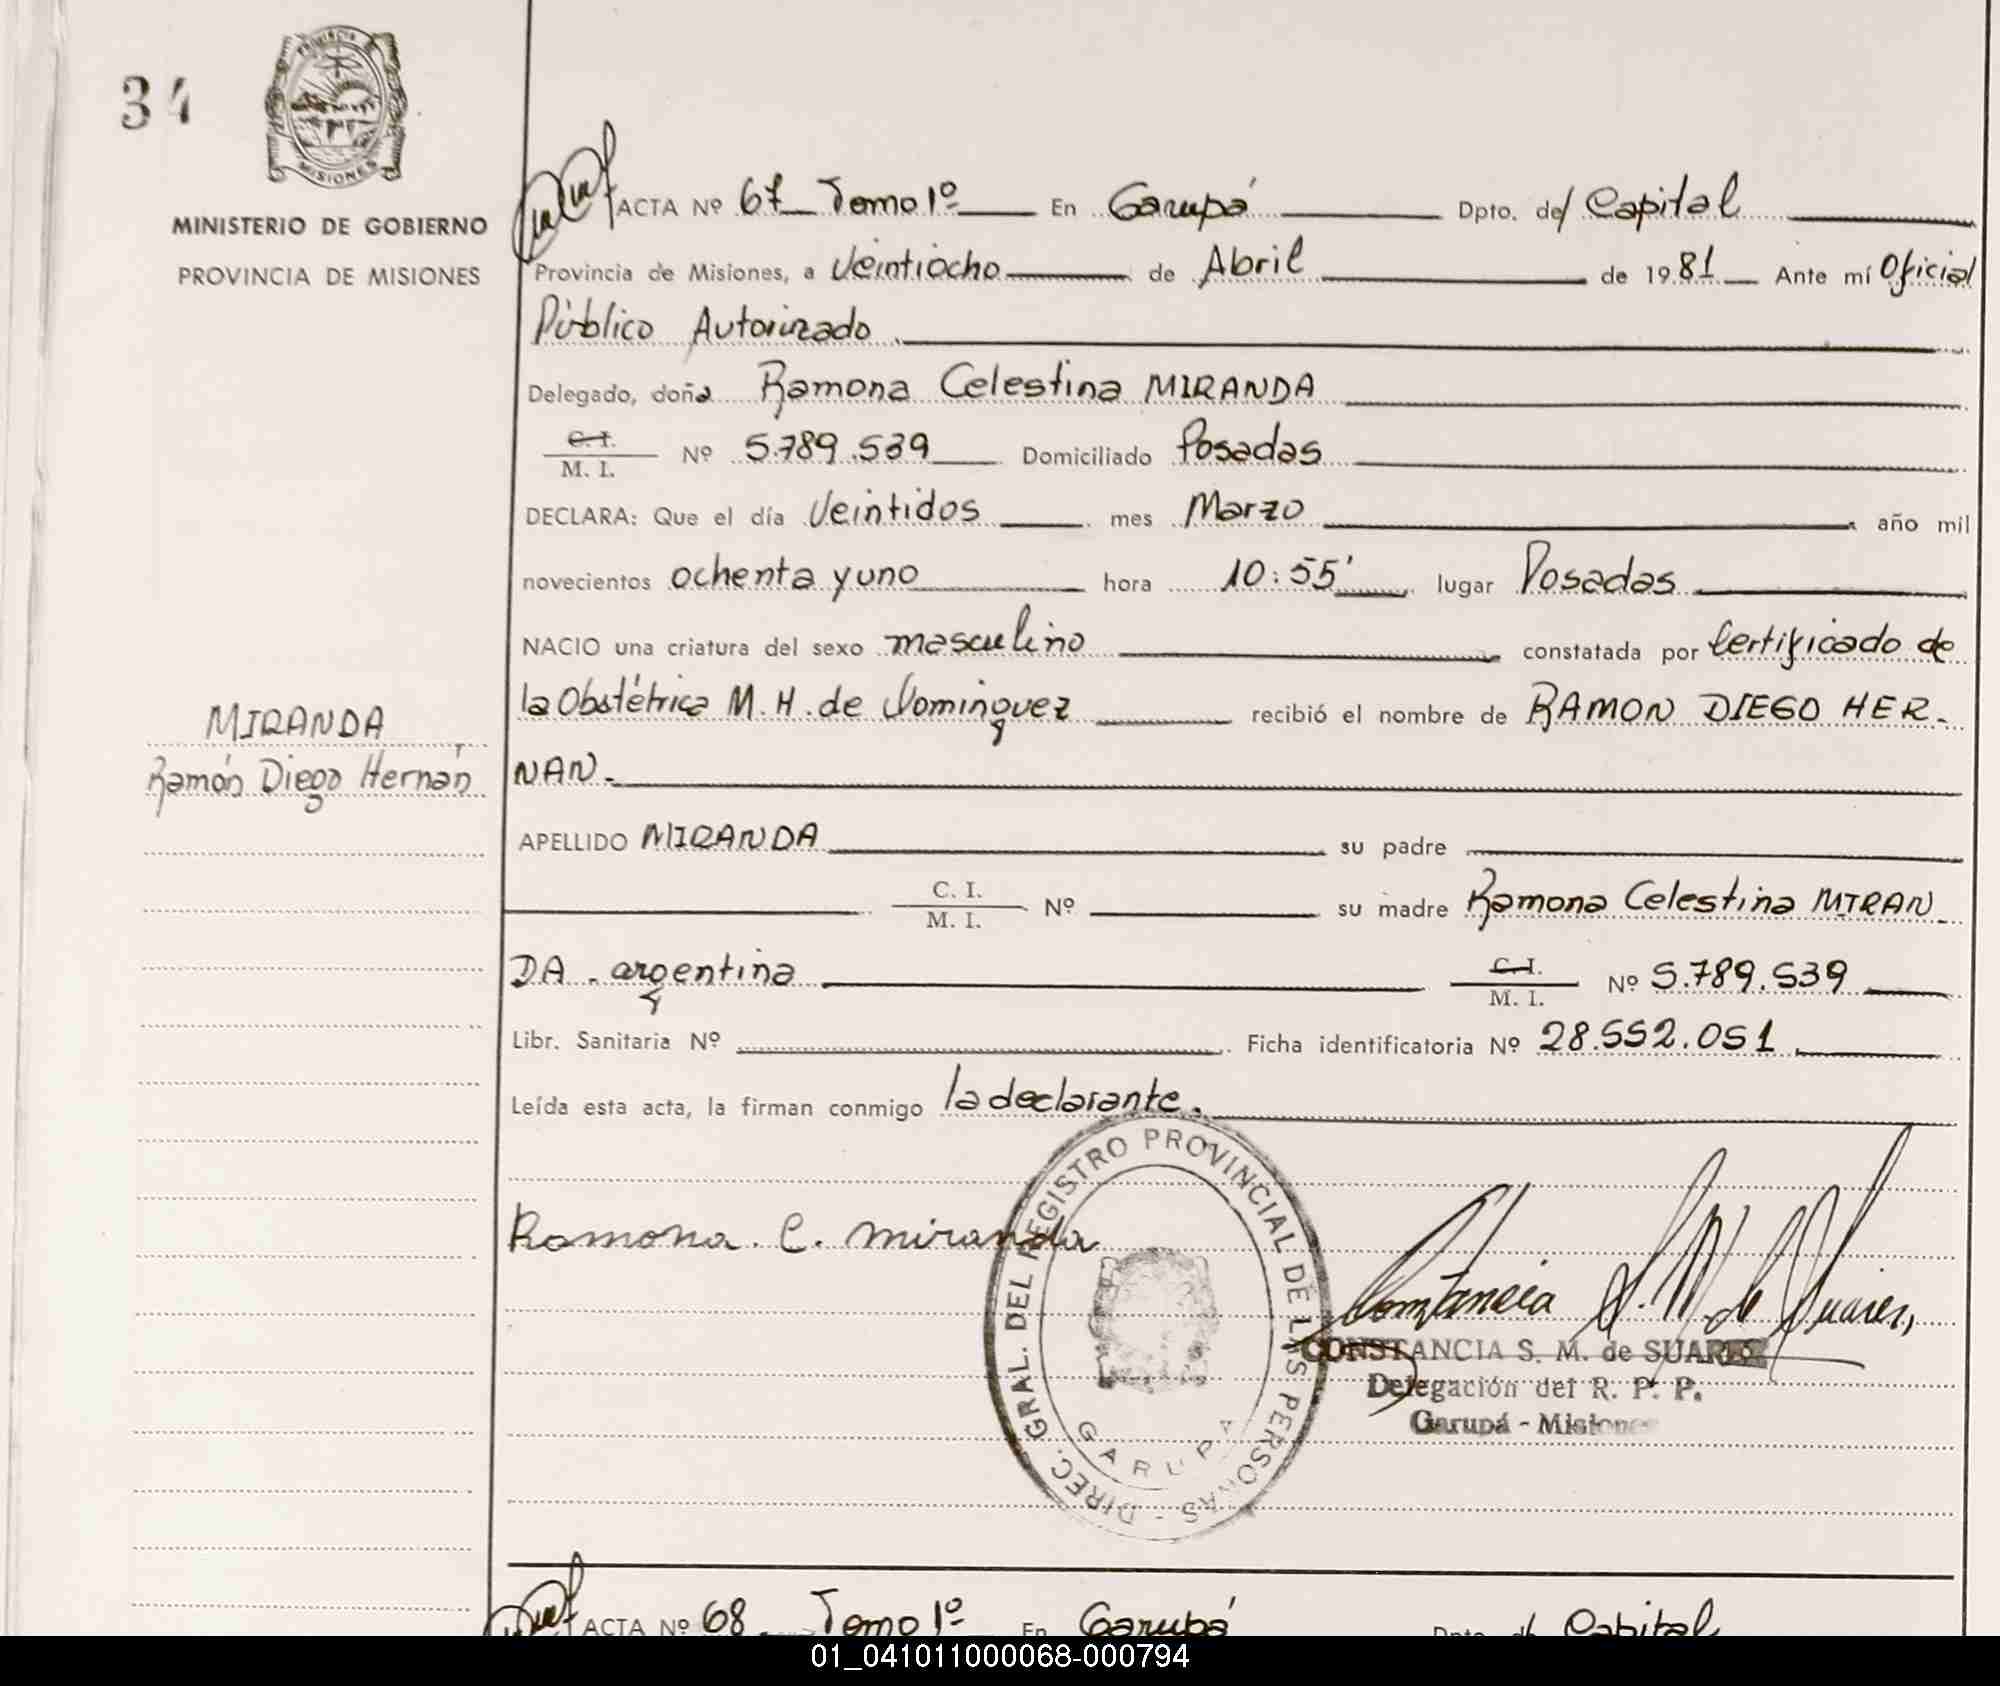 34
PROVINCIA DE
MISIONES
MINISTERIO DE GOBIERNO
PROVINCIA DE MISIONES
ACTA Nº 67 Tomo 1º En Garupá Dpto. del Capital
Provincia de Misiones, a Veintiocho de Abril de 1981 Ante mí Oficial
Público Autorizado
Delegado, doña Ramona Celestina MIRANDA
C. I.
M. I. Nº 5.789.539 Domiciliado Posadas
DECLARA: Que el día Veintidos mes Marzo año mil
novecientos ochenta y uno hora 10:55' lugar Posadas
NACIO una criatura del sexo masculino constatada por Certificado de
la Obstétrica M. H. de Dominguez recibió el nombre de RAMON DIEGO HER-
NAN.
MIRANDA
Ramón Diego Hernán
APELLIDO MIRANDA su padre
C. I.
M. I. Nº su madre Ramona Celestina MIRAN-
DA - argentina C. I.
M. I. Nº 5.789.539
Libr. Sanitaria Nº Ficha identificatoria Nº 28.552.051
Leída esta acta, la firman conmigo la declarante.
Ramona. C. miranda
DIREC. GRAL. DEL REGISTRO PROVINCIAL DE LAS PERSONAS -
GARUPA
Constancia S. M. de Suarez
CONSTANCIA S. M. de SUAREZ
Delegación del R. P. P.
Garupá - Misiones
ACTA Nº 68 Tomo 1º En Garupá Dpto. del Capital
01_041011000068-000794